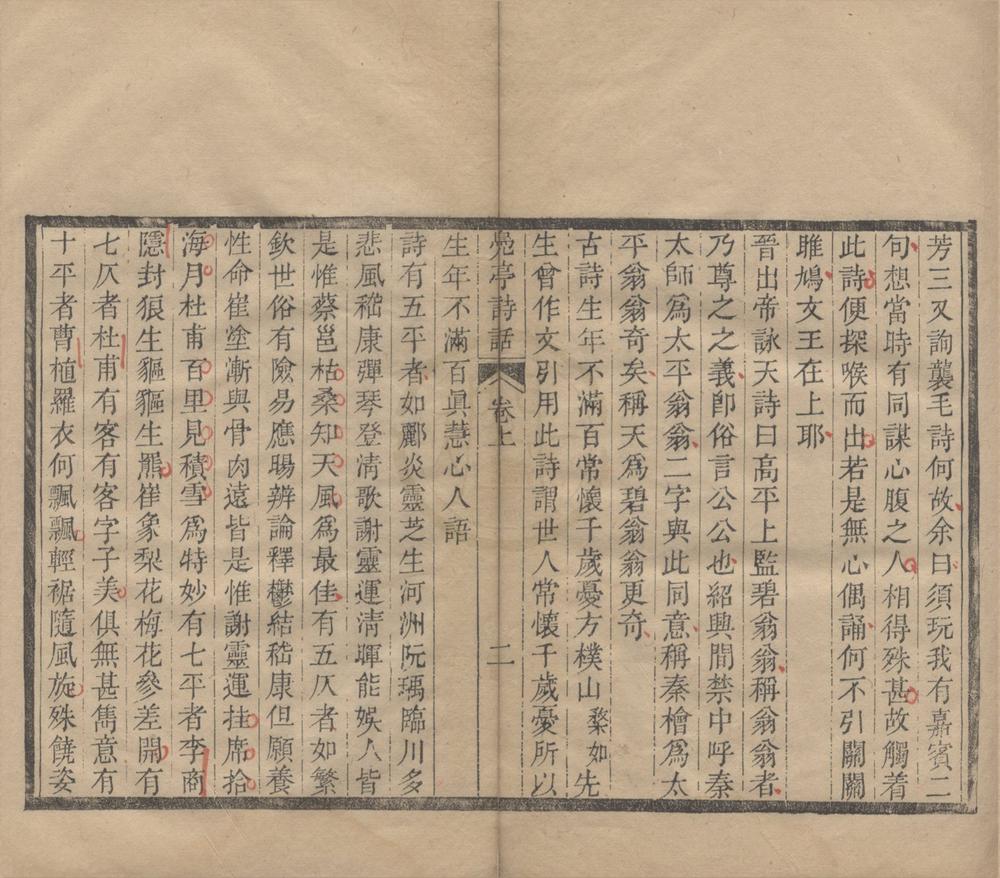 芳三又詢襲毛詩何故余曰須玩我有嘉賓二
句想當時有同謀心腹之人相得殊甚故觸着
此詩便探喉而出若是無心偶誦何不引關關
雎鳩文王在上耶
晉出帝詠天詩曰高平上監碧翁翁稱翁翁者
乃尊之之義卽俗言公公也紹興間禁中呼秦
太師爲太平翁翁二字與此同意稱秦檜爲太
平翁翁奇矣稱天爲碧翁翁更奇
古詩生年不滿百常懷千歲憂方樸山楘如先
生曾作文引用此詩謂世人常懷千歲憂所以
凫亭詩話 卷上 二
生年不滿百眞慧心人語
詩有五平者如酈炎靈芝生河洲阮瑀臨川多
悲風嵇康彈琴登清歌謝靈運清暉能娛人皆
是惟蔡邕枯桑知天風爲最佳有五仄者如繁
欽世俗有險易應瑒辨論釋鬱結嵇康但願養
性命崔塗漸與骨肉遠皆是惟謝靈運挂席拾
海月杜甫百里見積雪爲特妙有七平者李商
隱封狼生貙貙生羆崔象梨花梅花參差開有
七仄者杜甫有客有客字子美俱無甚雋意有
十平者曹植羅衣何飄飄輕裾隨風旋殊饒姿